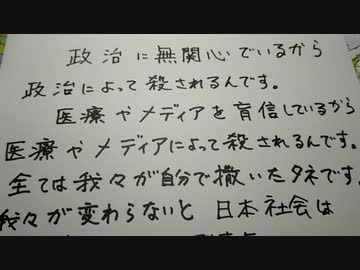 政治に無関心でいるから
政治によって殺されるんです。
医療やメディアを盲信しているから
医療やメディアによって殺されるんです。
全ては我々が自分で撒いたタネです。
我々が変わらないと 日本社会は